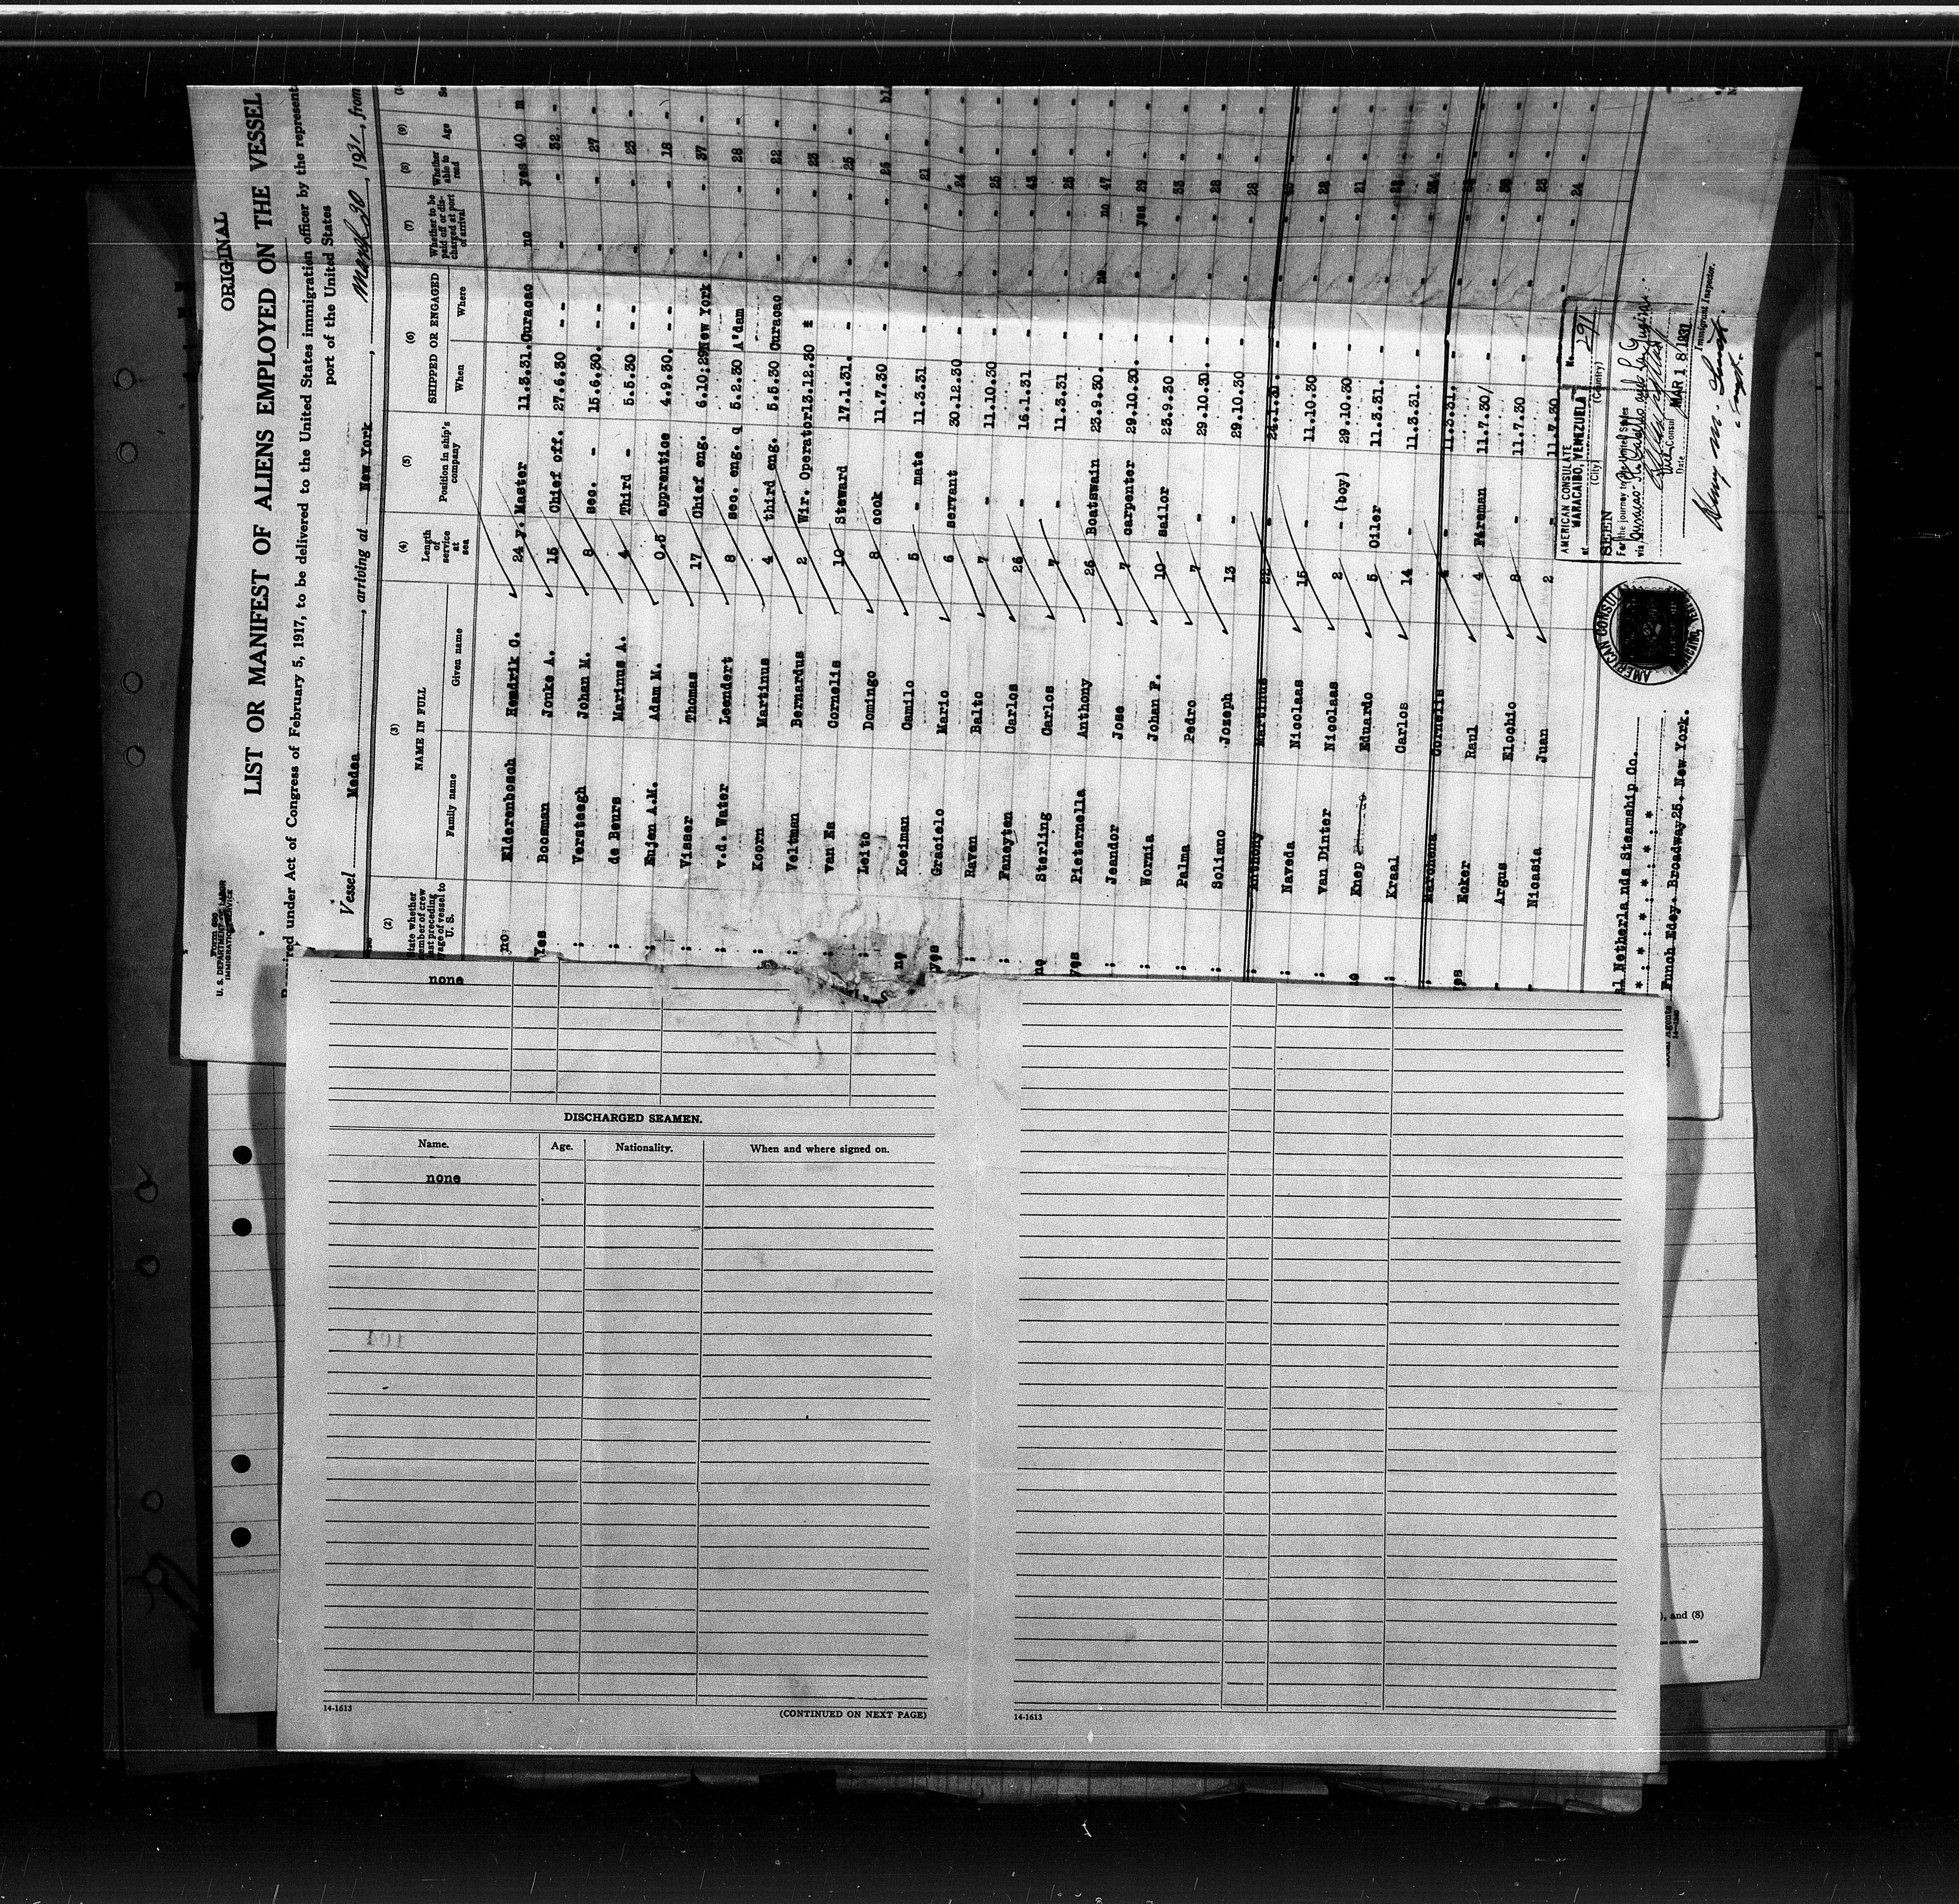 ORIGINAL
LIST OR MANIFEST OF ALIENS EMPLOYED ON THE VESSEL
Form 680
U. S. DEPARTMENT OF LABOR
IMMIGRATION SERVICE
under Act of Congress of February 5, 1917, to be delivered to the United States immigration officer by the represent
port of the United States
Vessel Medea, arriving at New York, March 30, 1931, from
(2) (3) (4) (5) (6) (7) (8) (9)
State whether member of crew last preceding voyage of vessel to U. S.
NAME IN FULL
Family name Given name
Length of service at sea
Position in ship's company
SHIPPED OR ENGAGED
When Where
Whether to be paid off or discharged at port of arrival
Whether able to read
Age
no Elderenbosch Hendrik C. 24 y. Master 11.3.31. Curacao no yes 40 m
Yes Boosman Jouke A. 15 Chief off. 27.6.30 - - - - 32 -
: Versteegh Johan M. 8 sec. - 15.6.30. - - - - 27 -
: de Beurs Marinus A. 4 Third - 5.5.30 - - - - 23 -
: Eujen A.M. Adam M. 0.5 apprentice 4.9.30. - - - - 18 -
: Visser Thomas 17 Chief eng. 6.10.29 New York - - 37 -
: v.d. Water Leendert 8 sec. eng. q 5.2.30 A'dam - - 28 -
: Koorn Martinus 4 third eng. 5.5.30 Curacao - - 22 -
: Veltman Bernardus 2 Wir. Operator 13.12.30 " - - 23 -
: van Es Cornelis 10 Steward 17.1.31. - - - 25 -
: Leito Domingo 8 cook 11.7.30 - - - 26 bl
no Koeiman Camilo 5 - mate 11.3.31 - - - 21 -
yes Gracielo Mario 6 servant 30.12.30 - - - 24 -
: Raven Balto 7 - 11.10.30 - - - 25 -
: Faneyten Carlos 26 - 16.1.31 - - - 43 -
no Sterling Carlos 7 - 11.3.31 - - - 25 -
yes Pieternella Anthony 26 Boatswain 23.9.30. - no no 47 -
: Jeandor Jose 7 carpenter 29.10.30. - - yes 29 -
: Wornia Johan F. 10 sailor 23.9.30 - - - 33 -
: Palma Pedro 7 - 29.10.30. - - - 28 -
: Soliano Jozeph 13 - 29.10.30 - - - 28 -
Anthony Martinus 22 - 24.1.30. - - -
: Naveda Nicolaas 15 - 11.10.30 - - - 28 -
: van Dinter Nicolaas 2 - (boy) 29.10.30 - - - 21 -
Knep Eduardo 5 Oiler 11.3.31. - - -
: Kraal Carlos 14 - 11.3.31. - - -
: Marchena Cornelis 4 - 11.3.31. - - -
yes Ecker Raul 4 Fireman 11.7.30/ - - -
- Argus Elochio 8 - 11.7.30 - - - 23 -
- Nicasia Juan 2 - 11.7.30 - - - 24 -
AMERICAN CONSULATE
at MARACAIBO, VENEZUELA
(City) (Country)
No. 291
SEEN
For the journey to the United States
via
Vice Consul
Date MAR 18 1931
AMERICAN CONSUL
Immigrant Inspector.
Netherlands Steamship Co.
Agents Funch Edey. Broadway 25. New York.
none
DISCHARGED SEAMEN.
Name. Age. Nationality. When and where signed on.
none
14-1613
(CONTINUED ON NEXT PAGE)
14-1613
), and (8)